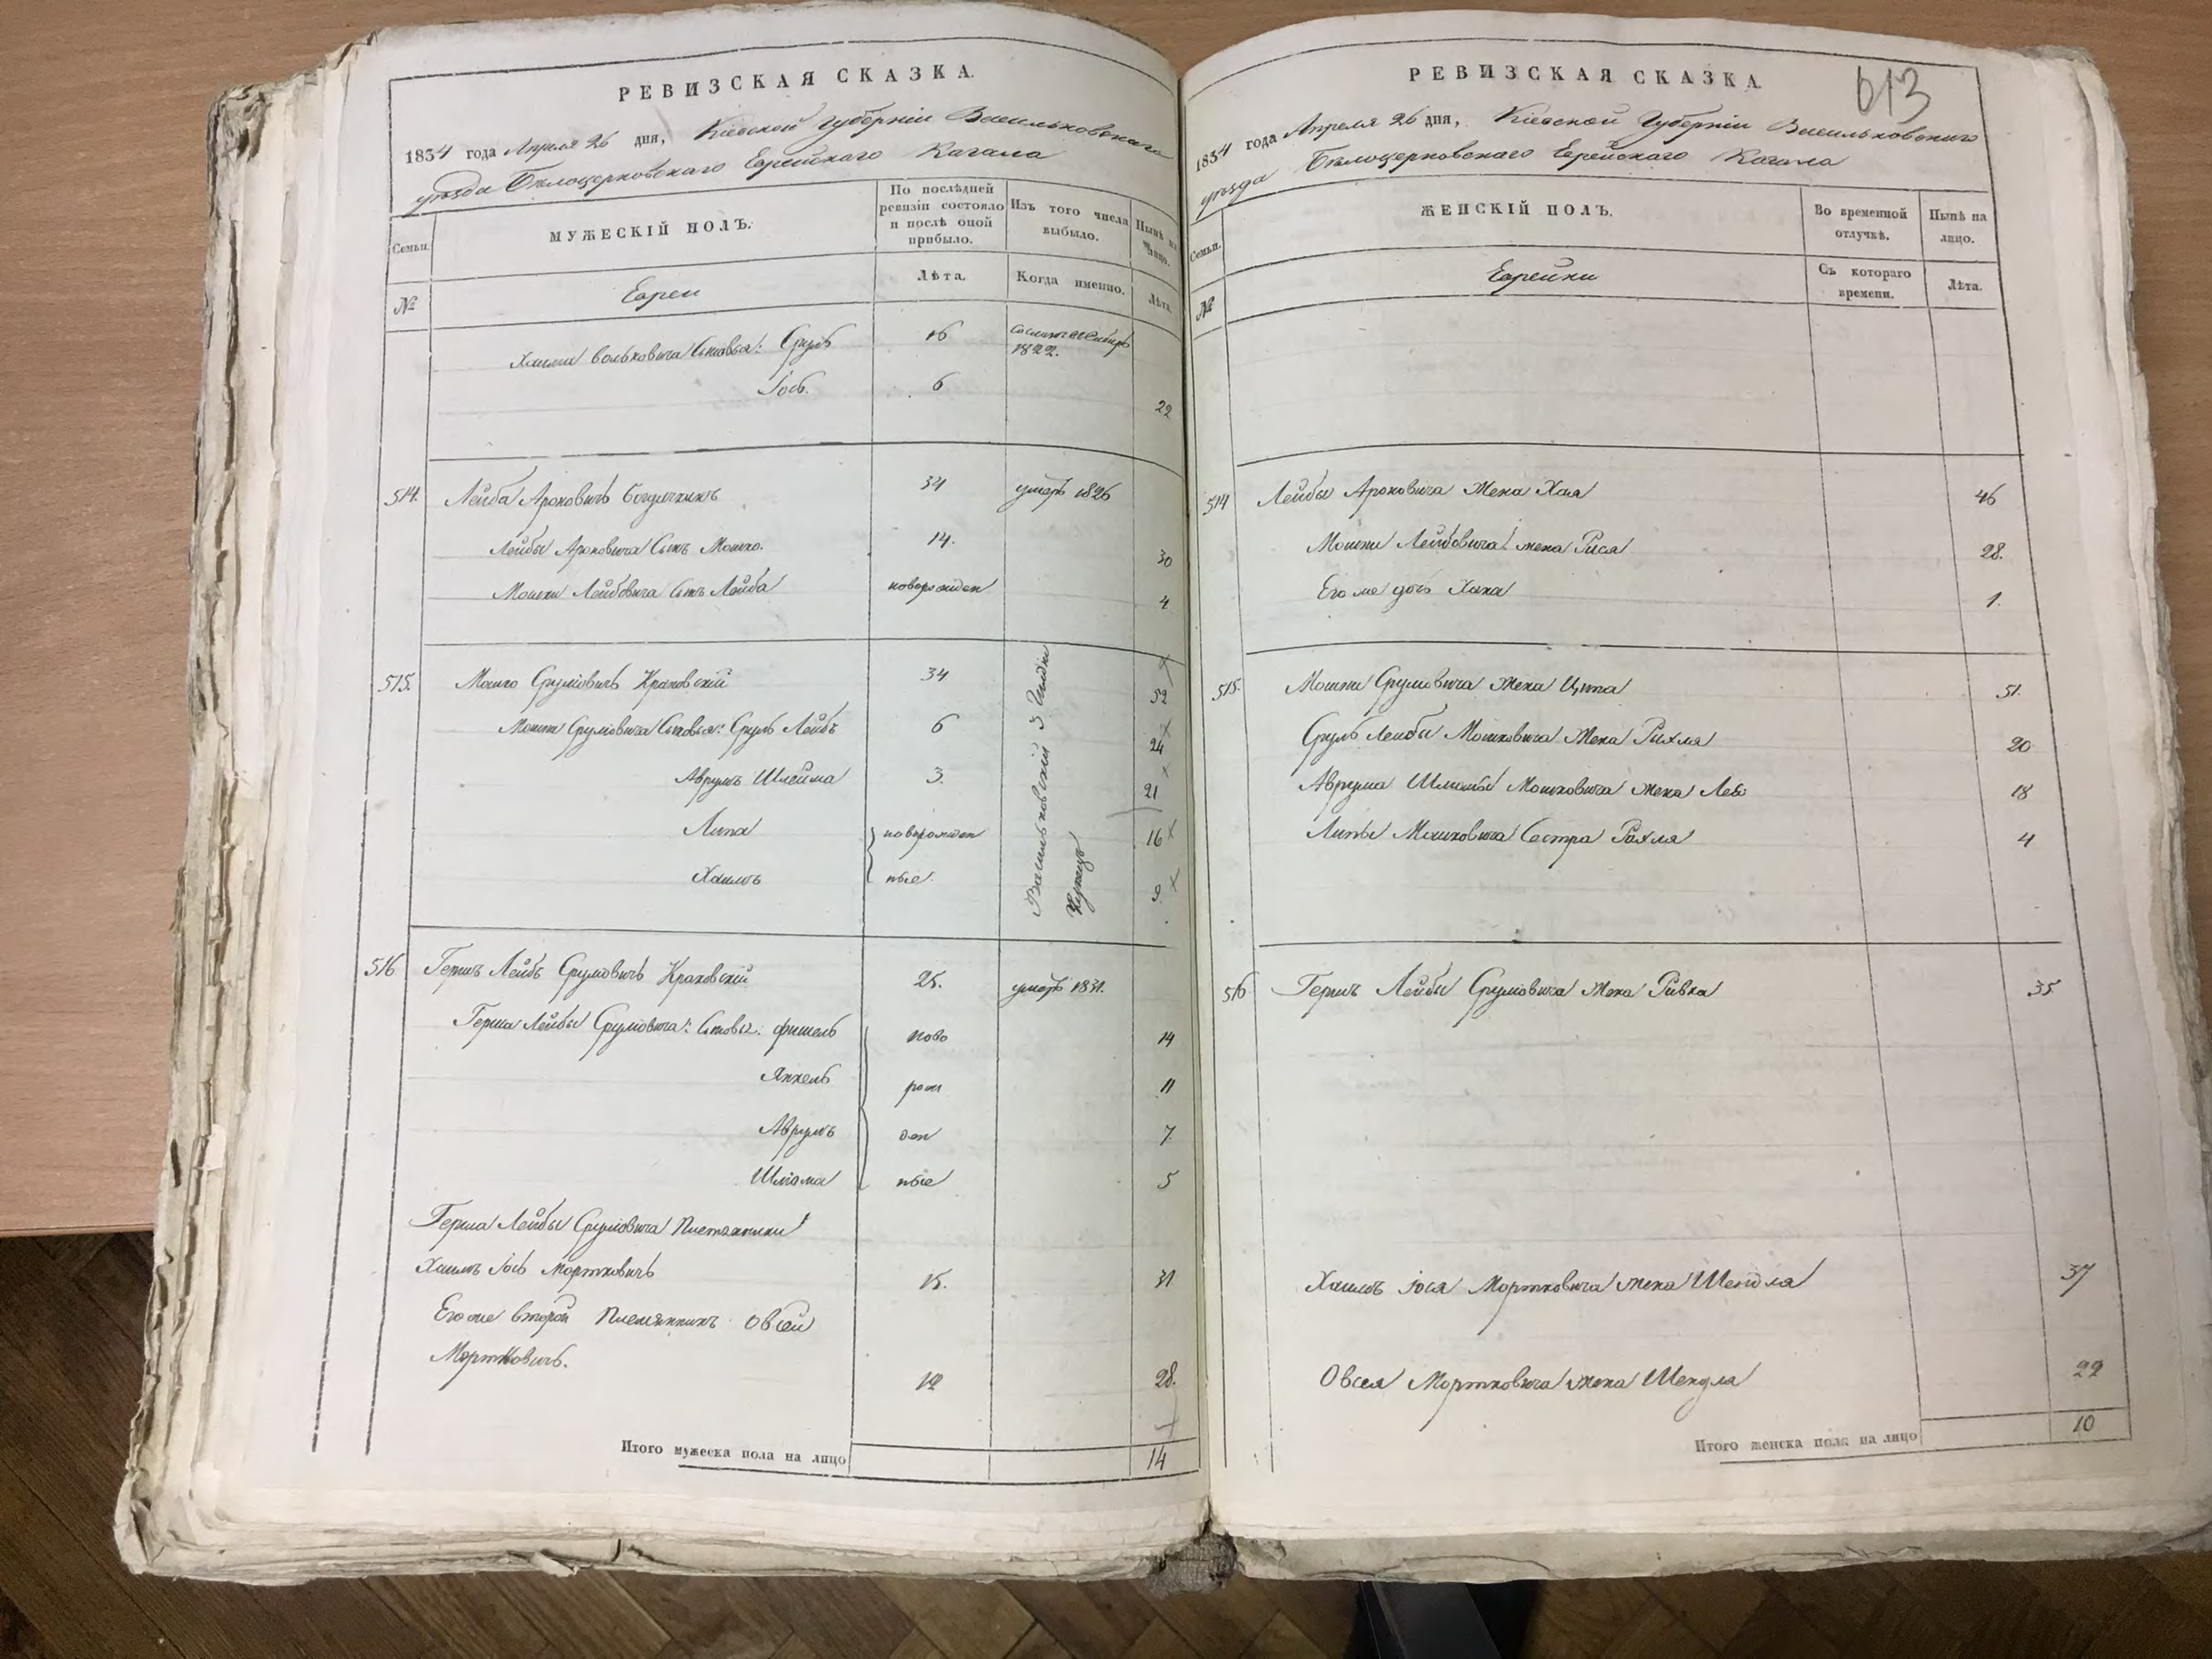 РЕВИЗСКАЯ СКАЗКА.
1834 года Апреля 26 дня, Кіевской Губерніи Васильковскаго
уѣзда Бѣлоцерковскаго Еврейскаго Кагала
Семьи.
МУЖЕСКІЙ ПОЛЪ.
По послѣдней ревизіи состояло и послѣ оной прибыло.
Изъ того числа выбыло.
Нынѣ на лицо.
№
Евреи
Лѣта.
Когда именно.
Лѣта.
Хаима Вольковича Сыновья: Сруль 16 1822.
Іось. 6 22
514. Лейба Ароновичъ 34 умеръ 1826
Лейбы Ароновича Сынъ Мошко. 14. 30
Мошки Лейбовича Сынъ Лейба новорожден 4
515. Мошко Срулiовичъ Краковскій 34 52
Мошки Срулiовича Сыновья: Сруль Лейбъ 6 24
Аврумъ Шлейма 3. 21
Липа новорожден 16
Хаимъ ные. 9
Васильковскій 3 Гильдіи
Купецъ
516 Гершъ Лейбъ Срулiовичъ Краковскій 25. умеръ 1831.
Герша Лейбы Срулiовича: Сыновья: Фишель ново 14
Янкель рож 11
Аврумъ ден 7
Шліома ные 5
Герша Лейбы Срулiовича Племянники
Хаимъ Іось Мортковичъ 15. 31
Его же второй Племянникъ Овсей
Мортковичъ. 12 28.
Итого мужеска пола на лицо 14
РЕВИЗСКАЯ СКАЗКА.
613
1834 года Апреля 26 дня, Кіевской Губерніи Васильковскаго
уѣзда Бѣлоцерковскаго Еврейскаго Кагала
Семьи.
ЖЕНСКІЙ ПОЛЪ.
Во временной отлучкѣ.
Нынѣ на лицо.
№
Еврейки
Съ котораго времени.
Лѣта.
514 Лейбы Ароновича Жена Хая 46
Мошки Лейбовича жена Рися 28.
Его же дочь Хана 1.
515. Мошки Срулiовича Жена Ципа 51.
Сруль Лейбы Мошковича Жена Рыхля 20
Аврума Шлiомы Мошковича жена 18
Липы Мошковича Сестра Рахля 4
516 Гершъ Лейбы Срулiовича Жена Ривка 35.
Хаимъ Іося Мортковича жена Шейдля 37
Овсея Мортковича жена Шендля 22
Итого женска пола на лицо 10